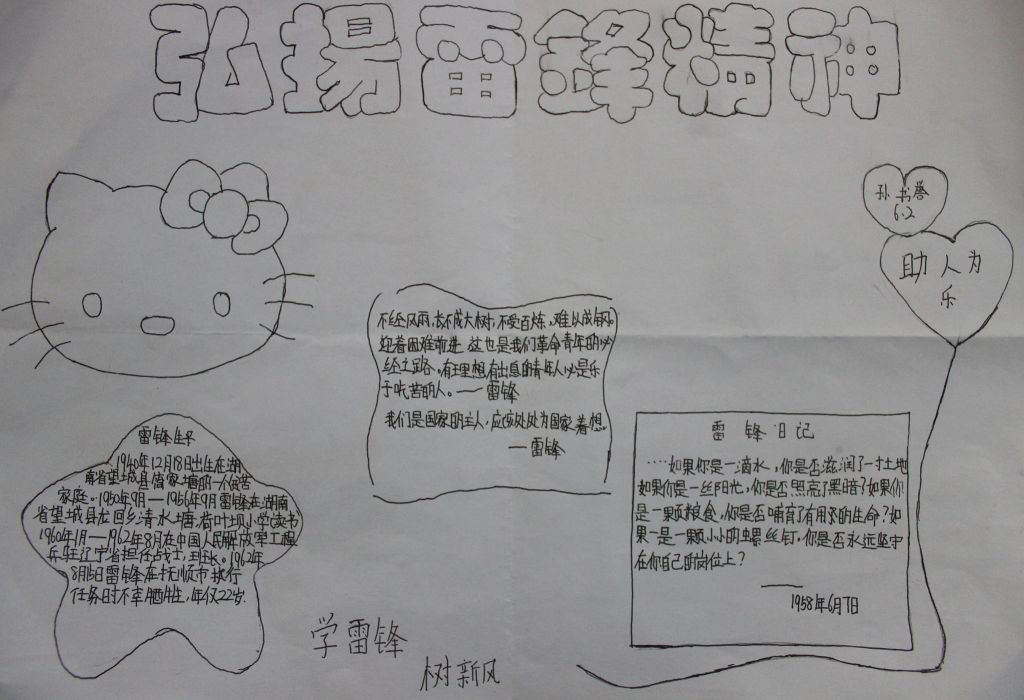 弘揚雷鋒精神
孙书誉
6.2
助人为
乐
不经风雨,长不成大树,不受百炼,难以成钢。
迎着困难前进,这也是我们革命青年的必
经之路。有理想有出息的青年人必是乐
于吃苦的人。——雷锋
我们是国家的主人,应该处处为国家着想。
—雷锋
雷锋生平
1940年12月18日出生在湖
南省望城县简家塘的一个贫苦
家庭。1950年9月—1956年9月雷锋在湖南
省望城县龙回乡清水塘、荷叶坝小学读书
1960年1月—1962年8月在中国人民解放军工程
兵驻辽宁省担任战士,班长。1962年
8月15日雷锋在抚顺市执行
任务时不幸牺牲,年仅22岁.
雷锋日记
……如果你是一滴水,你是否滋润了一寸土地
如果你是一丝阳光,你是否照亮了黑暗?如果你
是一颗粮食,你是否哺育了有用的生命?如
果一是一颗小小的螺丝钉,你是否永远坚守
在你自己的岗位上?
——
1958年6月7日
学雷锋
树新风